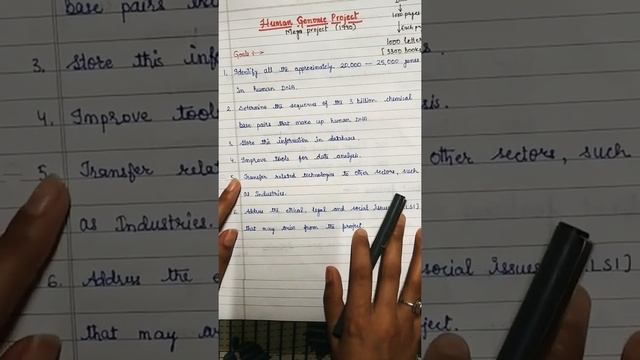 Human Genome Project
Mega project (1990)
1000 pages
Each p
1000 letter
[3300 books
Goals :-
1. Identify all the approximately 20,000 — 25,000 genes
in human DNA.
2. Determine the sequence of the 3 billion chemical
base pairs that make up human DNA
3. Store this information in databases.
4. Improve tools for data analysis.
5. Transfer related technologies to other sectors, such
as Industries.
6. Address the ethical, legal and social issues LSI]
that may arise from the project.
base pairs
3. Store this inf
4. Improve tools
5. Transfer relat
as Industries.
6. Address the e
that may ar
sis.
other sectors, such
social issues .LSI]
oject.